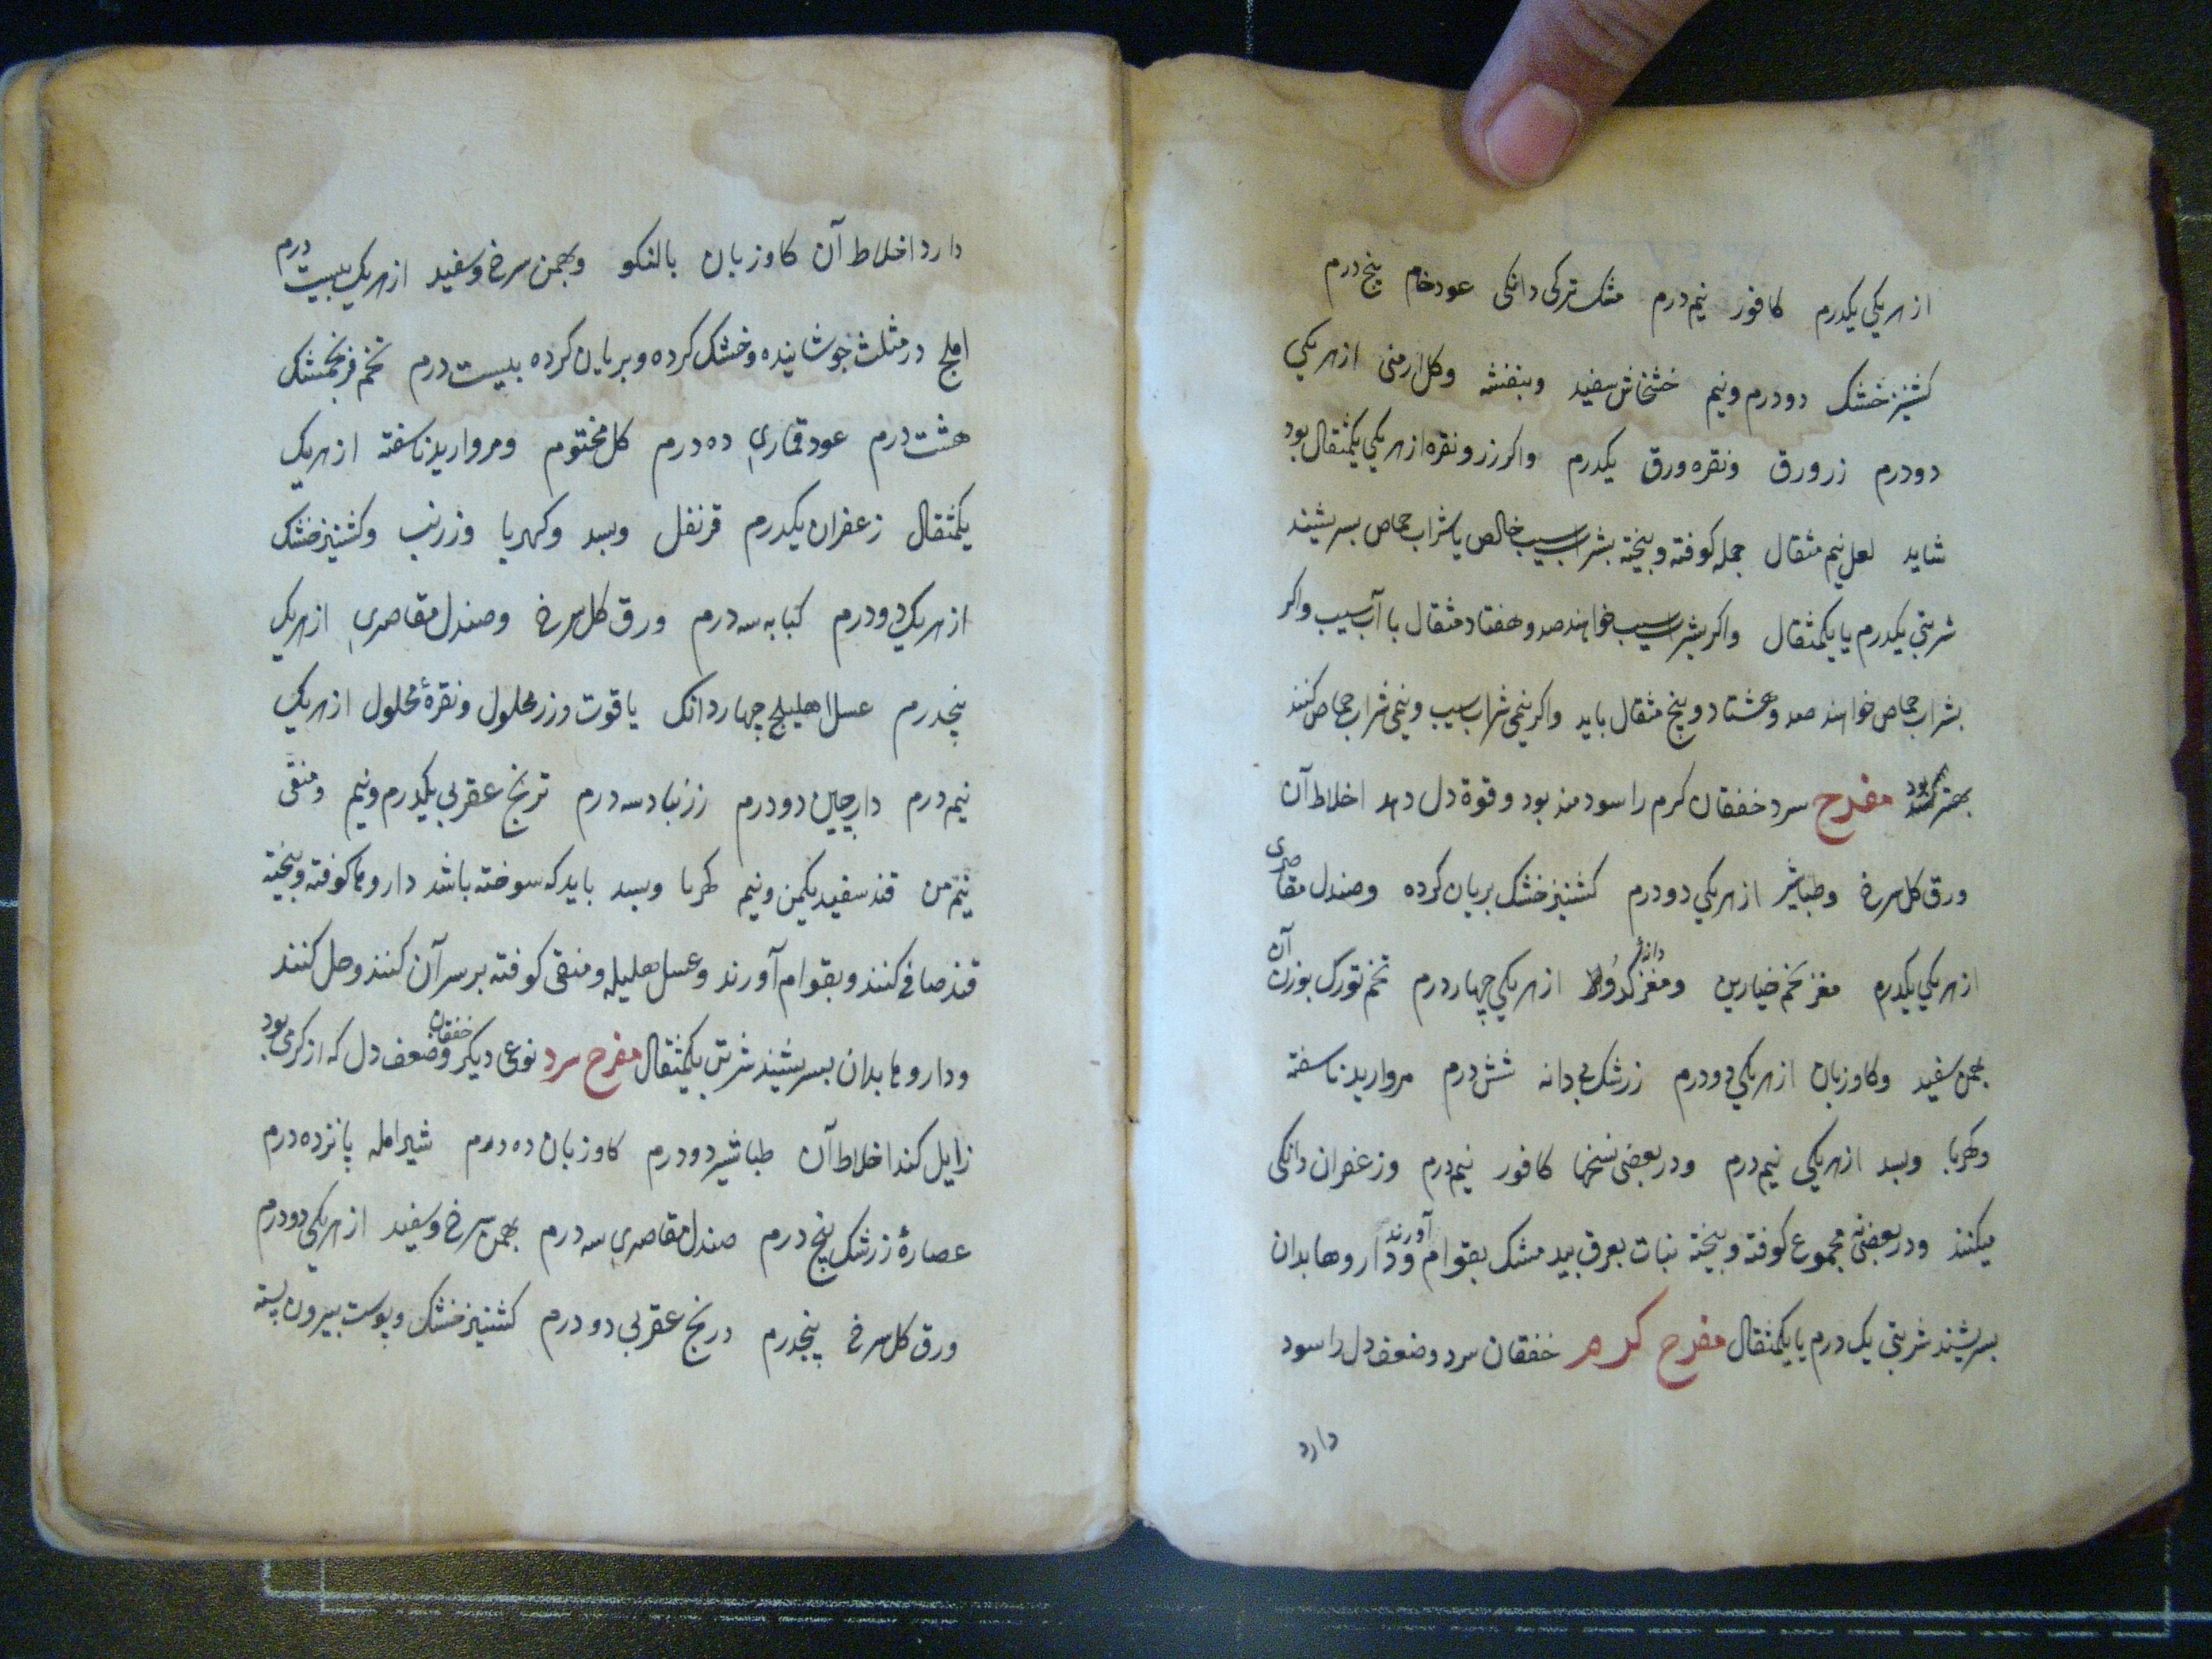 از هر یکی یکدرم کافور نیم درم مشک ترکی دانکی عود خام پنج درم
کشنیز خشک دو درم و نیم خشخاش سفید و بنفشه و کل ارمنی از هر یکی
دو درم زر ورق و نقره ورق یکدرم و اکر زر و نقره از هر یکی یکمثقال بود
شاید لعل نیم مثقال جمله کوفته و بیخته بشراب سیب خالص یا شراب حماص بسریشند
شربتی یکدرم یا یکمثقال و اکر بشراب سیب خواهند صد و هفتاد مثقال با آب سیب و اکر
بشراب حماص خواهند صد و هشتاد و پنج مثقال باید و اکر نیمی شراب سیب و نیمی شراب حماص کنند
بهتر بود مفرح سرد خفقان کرم را سودمند بود و قوة دل دهد اخلاط آن
ورق کل سرخ و طباشیر از هر یکی دو درم کشنیز خشک بریان کرده و صندل مقاصری
از هر یکی یکدرم مغز تخم خیارین و مغز دانهٔ کدو از هر یکی چهار درم تخم تورک بوزن آن
بهمن سفید و کاوزبان از هر یکی دو درم زرشک بی دانه شش درم مروارید ناسفته
و کهربا و بسد از هر یکی نیم درم و در بعضی نسخها کافور نیم درم و زعفران دانکی
میکنند و در بعضی نه مجموع کوفته و بیخته نبات بعرق بید مشک بقوام آورند و داروها بدان
بسریشند شربتی یک درم یا یکمثقال مفرح کرم خفقان سرد و ضعف دل را سود
دارد
دارد اخلاط آن کاوزبان بالنکو و بهمن سرخ و سفید از هر یک بیست درم
املج در مثلث جوشانیده و خشک کرده و بریان کرده بیست درم تخم فرنجمشک
هشت درم عود قماری ده درم کل مختوم و مروارید ناسفته از هر یک
یکمثقال زعفران یکدرم قرنفل و بسد و کهربا و زرنب و کشنیز خشک
از هر یک دو درم کبابه سه درم ورق کل سرخ و صندل مقاصری از هر یک
پنجدرم عسل اهلیلج چهار دانک یاقوت و زر محلول و نقرهٔ محلول از هر یک
نیم درم دارچین دو درم زرنباد سه درم ترنج عقربی یکدرم و نیم و منقی
نیم من قند سفید یکمن و نیم کهربا و بسد باید که سوخته باشد داروها کوفته و بیخته
قند صافی کنند و بقوام آورند و عسل هلیله و منقی کوفته بر سر آن کنند و حل کنند
و داروها بدان بسریشند شربتی یکمثقال مفرح سرد نوعی دیکر خفقان و ضعف دل که از کرمی بود
زایل کند اخلاط آن طباشیر دو درم کاوزبان ده درم شیر امله پانزده درم
عصارهٔ زرشک پنج درم صندل مقاصری سه درم بهمن سرخ و سفید از هر یکی دو درم
ورق کل سرخ پنجدرم درنج عقربی دو درم کشنیز خشک و پوست بیرون پسته